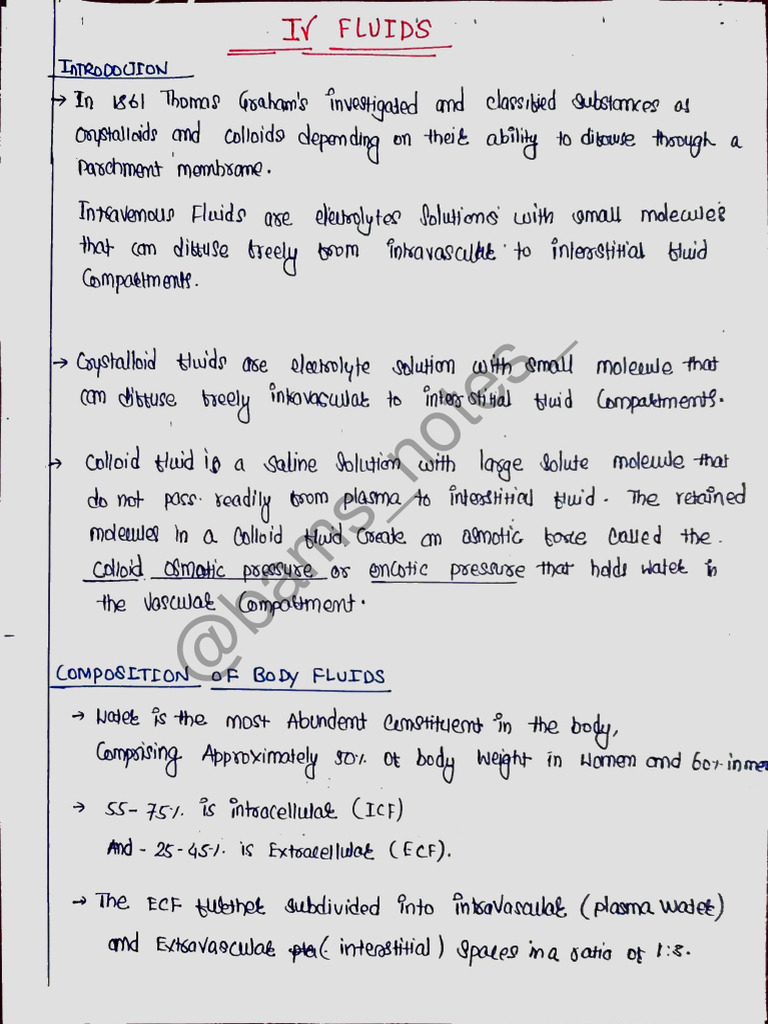 IV FLUIDS
INTRODUCTION
→ In 1861 Thomas Graham's investigated and classified substances as
crystalloids and colloids depending on their ability to diffuse through a
parchment membrane.
Intravenous Fluids are electrolytes solutions with small molecules
that can diffuse freely from intravascular to interstitial fluid
compartments.
→ Crystalloid fluids are electrolyte solution with small molecule that
can diffuse freely intravascular to interstitial fluid compartments.
→ Colloid fluid is a saline solution with large solute molecule that
do not pass readily from plasma to interstitial fluid. The retained
molecules in a colloid fluid create an osmotic force called the
colloid osmotic pressure or oncotic pressure that holds water in
the vascular compartment.
@bams_notes_
COMPOSITION OF BODY FLUIDS
→ Water is the most Abundent constituent in the body,
comprising Approximately 50% of body weight in women and 60% in men
→ 55-75% is intracellular (ICF)
And - 25-45% is Extracellular (ECF).
→ The ECF further subdivided into intravascular (plasma water)
and Extravascular (interstitial) spaces in a ratio of 1:3.